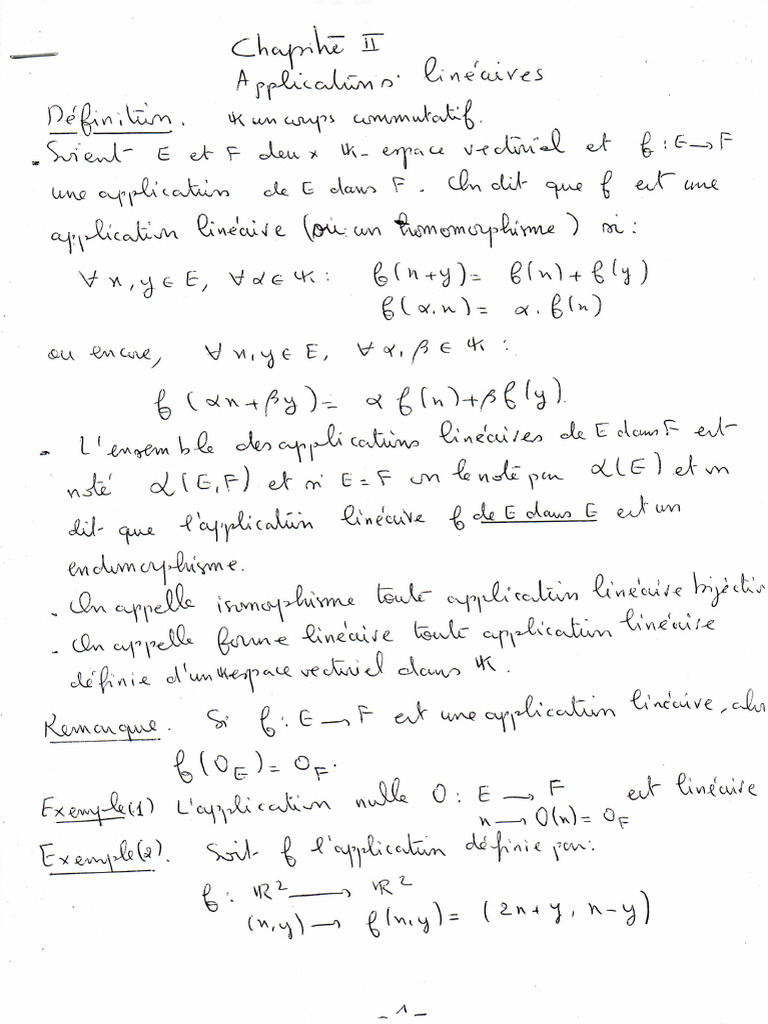 Chapitre II
Applications linéaires
Définition. 𝕂 un corps commutatif.
- Soient E et F deux 𝕂-espace vectoriel et f : E → F
une application de E dans F. On dit que f est une
application linéaire (ou un homomorphisme) si :
∀ x, y ∈ E, ∀ α ∈ 𝕂 : f(x+y) = f(x) + f(y)
f(α.x) = α.f(x)
ou encore, ∀ x, y ∈ E, ∀ α, β ∈ 𝕂 :
f(αx + βy) = α f(x) + β f(y).
- L'ensemble des applications linéaires de E dans F est
noté ℒ(E,F) et si E = F on le note par ℒ(E) et on
dit que l'application linéaire f de E dans E est un
endomorphisme.
- On appelle isomorphisme toute application linéaire bijectiv
- On appelle forme linéaire toute application linéaire
définie d'un 𝕂espace vectoriel dans 𝕂.
Remarque. Si f : E → F est une application linéaire, alor
f(0_E) = 0_F.
Exemple(1) L'application nulle O : E → F est linéaire
x → O(x) = 0_F
Exemple(2). Soit f l'application définie par :
f : ℝ² → ℝ²
(x,y) → f(x,y) = (2x + y, x - y)
- 1 -